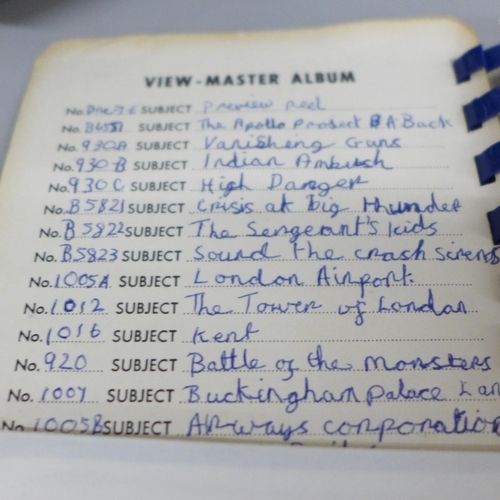 VIEW-MASTER ALBUM
No. SUBJECT Preview reel
No. SUBJECT The Apollo Project Back
No. 930A SUBJECT Vanishing Guns
No. 930 B SUBJECT Indian Ambush
No. 930 C SUBJECT High Danger
No. B5821 SUBJECT Crisis at big thunder
No. B5822 SUBJECT The Sergeant's kids
No. B5823 SUBJECT Sound the crash sirens
No. 1005A SUBJECT London Airport.
No. 1012 SUBJECT The Tower of London
No. 1016 SUBJECT Kent
No. 920 SUBJECT Battle of the monsters
No. 1007 SUBJECT Buckingham palace
No. 1005B SUBJECT Airways corporation